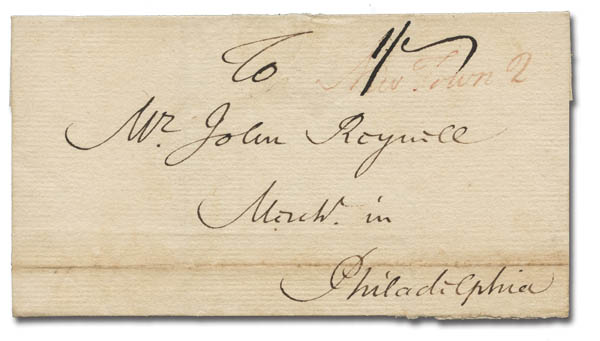 To New Town 2
Mr. John Reynell
Mercht. in
Philadelphia